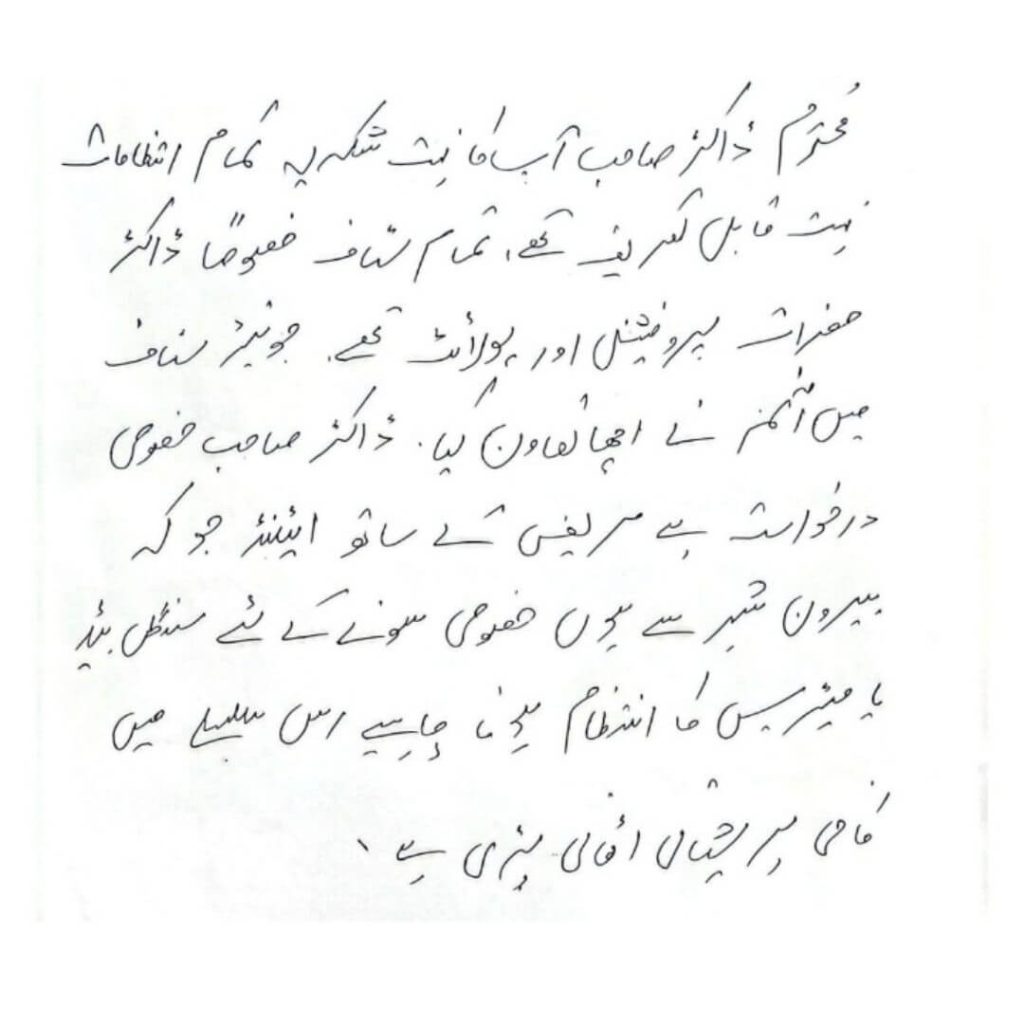 محترم ڈاکٹر صاحب آپ کا بہت شکریہ تمام انتظامات
بہت قابل تعریف تھے، تمام سٹاف خصوصاً ڈاکٹر
حضرات پروفیشنل اور پولائٹ تھے۔ جونیئر سٹاف
میں نے اچھا تعاون کیا۔ ڈاکٹر صاحب خصوصی
درخواست ہے مریض کے ساتھ اٹینڈنٹ جو کہ
بیرون شہر سے ہوں خصوصی سونے کے لئے سنگل بیڈ
یا میٹریس کا انتظام ہونا چاہیے اس سلسلے میں
کافی پریشانی اٹھانی پڑی ہے۔